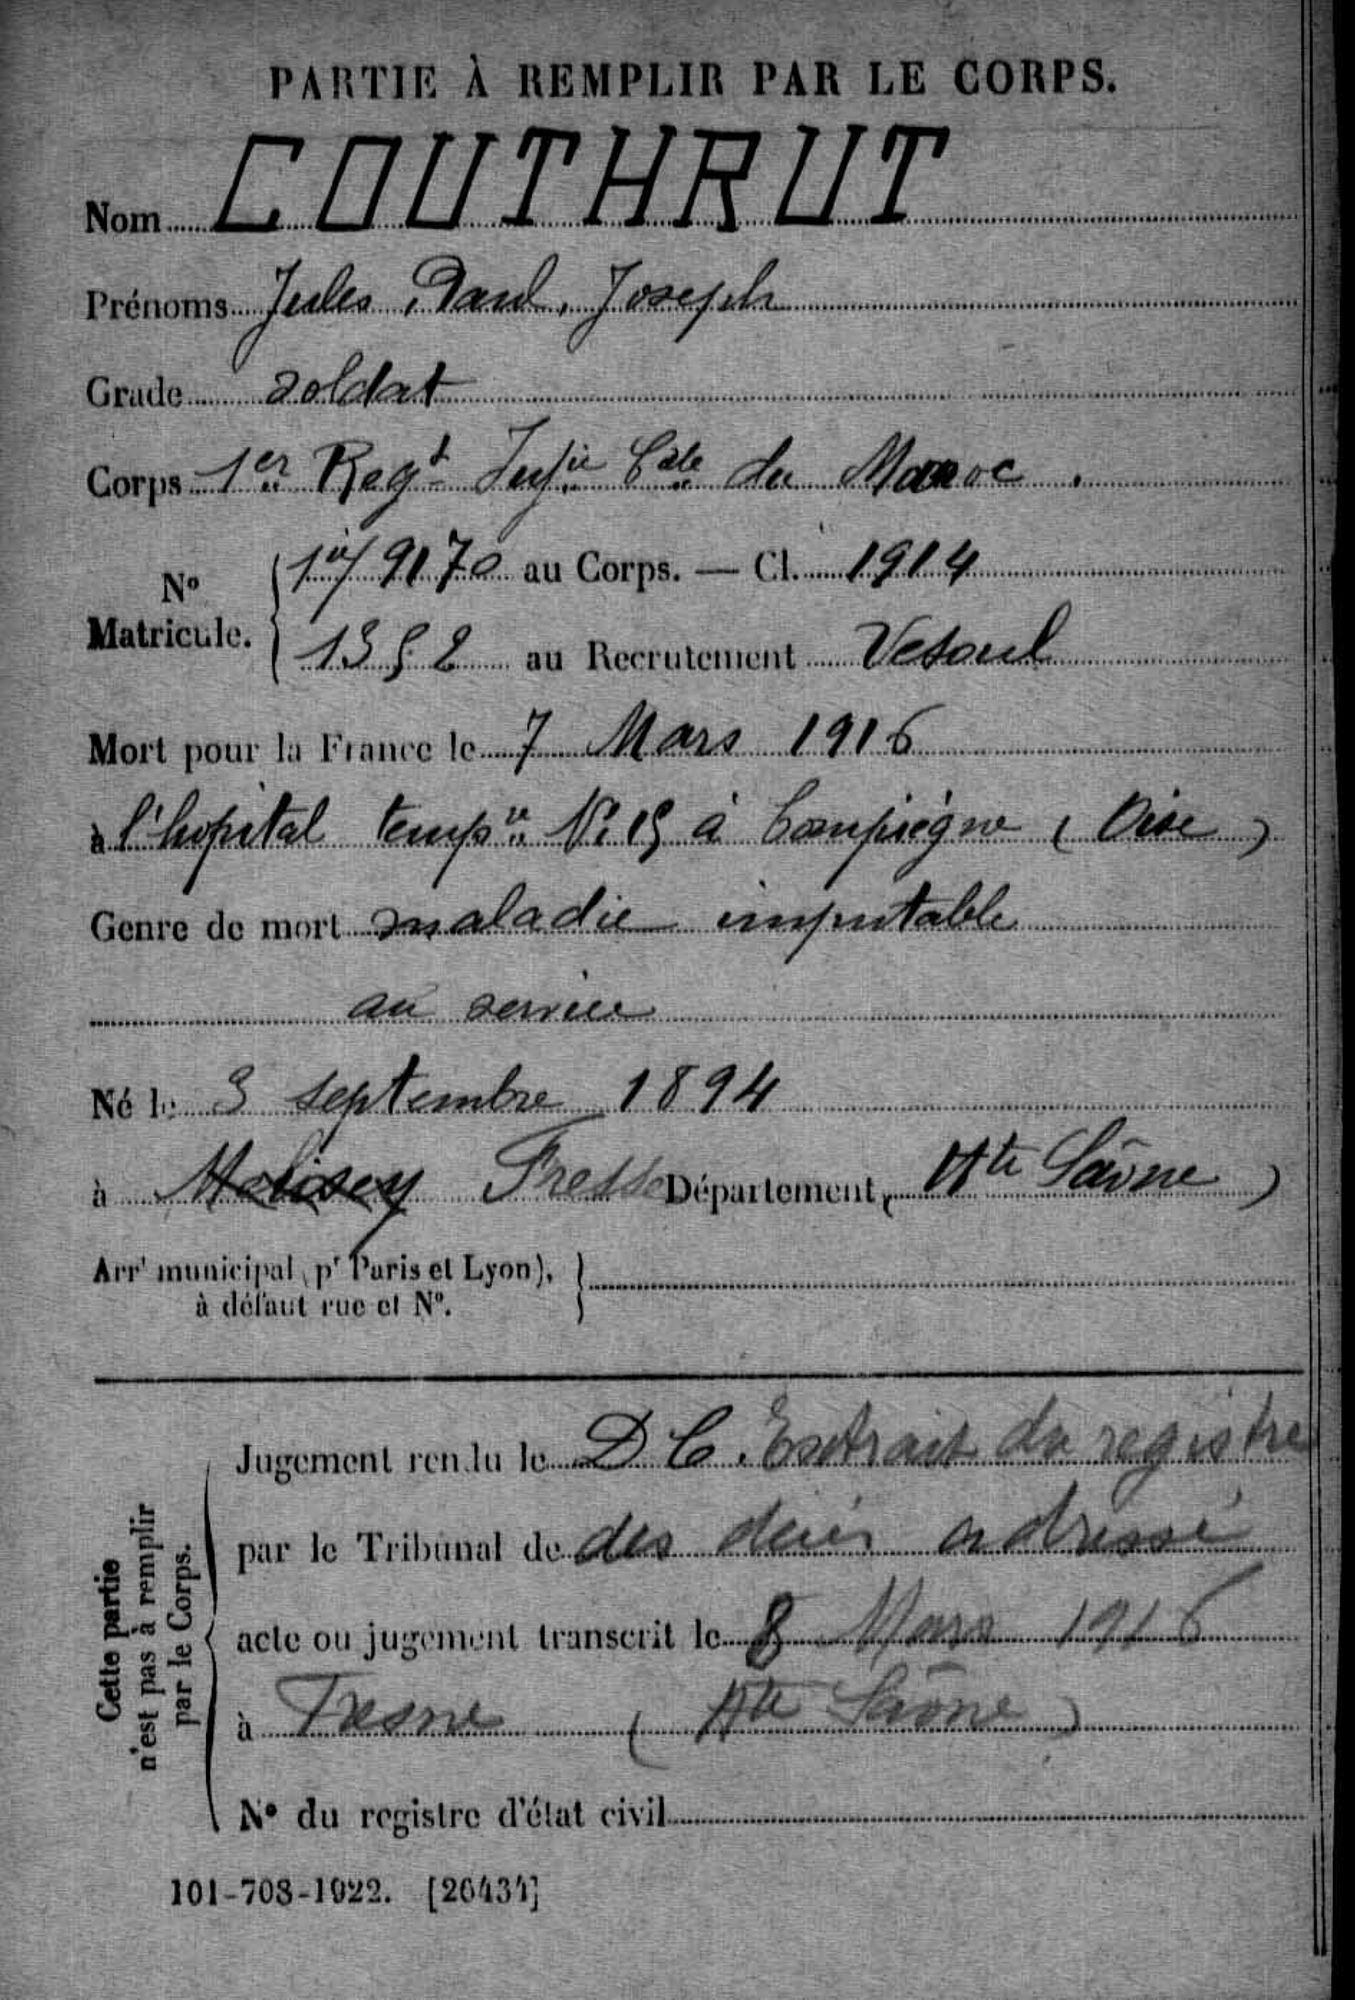 PARTIE À REMPLIR PAR LE CORPS.
Nom COUTHRUT
Prénoms Jules, Paul, Joseph
Grade soldat
Corps 1er Regt Infie Cale du Maroc.
No Matricule. 9170 au Corps. — Cl. 1914
1352 au Recrutement Vesoul
Mort pour la France le 7 Mars 1916
à l'hopital tempre No 15 à Compiègne (Oise)
Genre de mort maladie imputable
au service
Né le 3 septembre 1894
à Melisey Fresse Département (Hte Saône)
Arrt municipal (pr Paris et Lyon),
à défaut rue et No.
Cette partie
n'est pas à remplir
par le Corps.
Jugement rendu le D C. Extrait du registre
par le Tribunal de des décès adressé
acte ou jugement transcrit le 8 Mars 1916
à (Hte Saône)
No du registre d'état civil
101-708-1922. [26434]